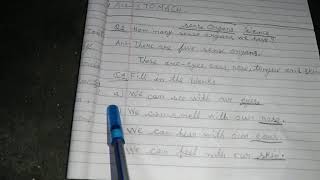 STOMACH
sense organs
Q2 How many sense organs we have?
Ans There are five sense organs.
These are-eyes ears, nose, tongue and skin
Q3 Fill in the blanks
a) We can see with our eyes.
We can smell with our nose.
We can hear with our ears.
We can feel with our skin.